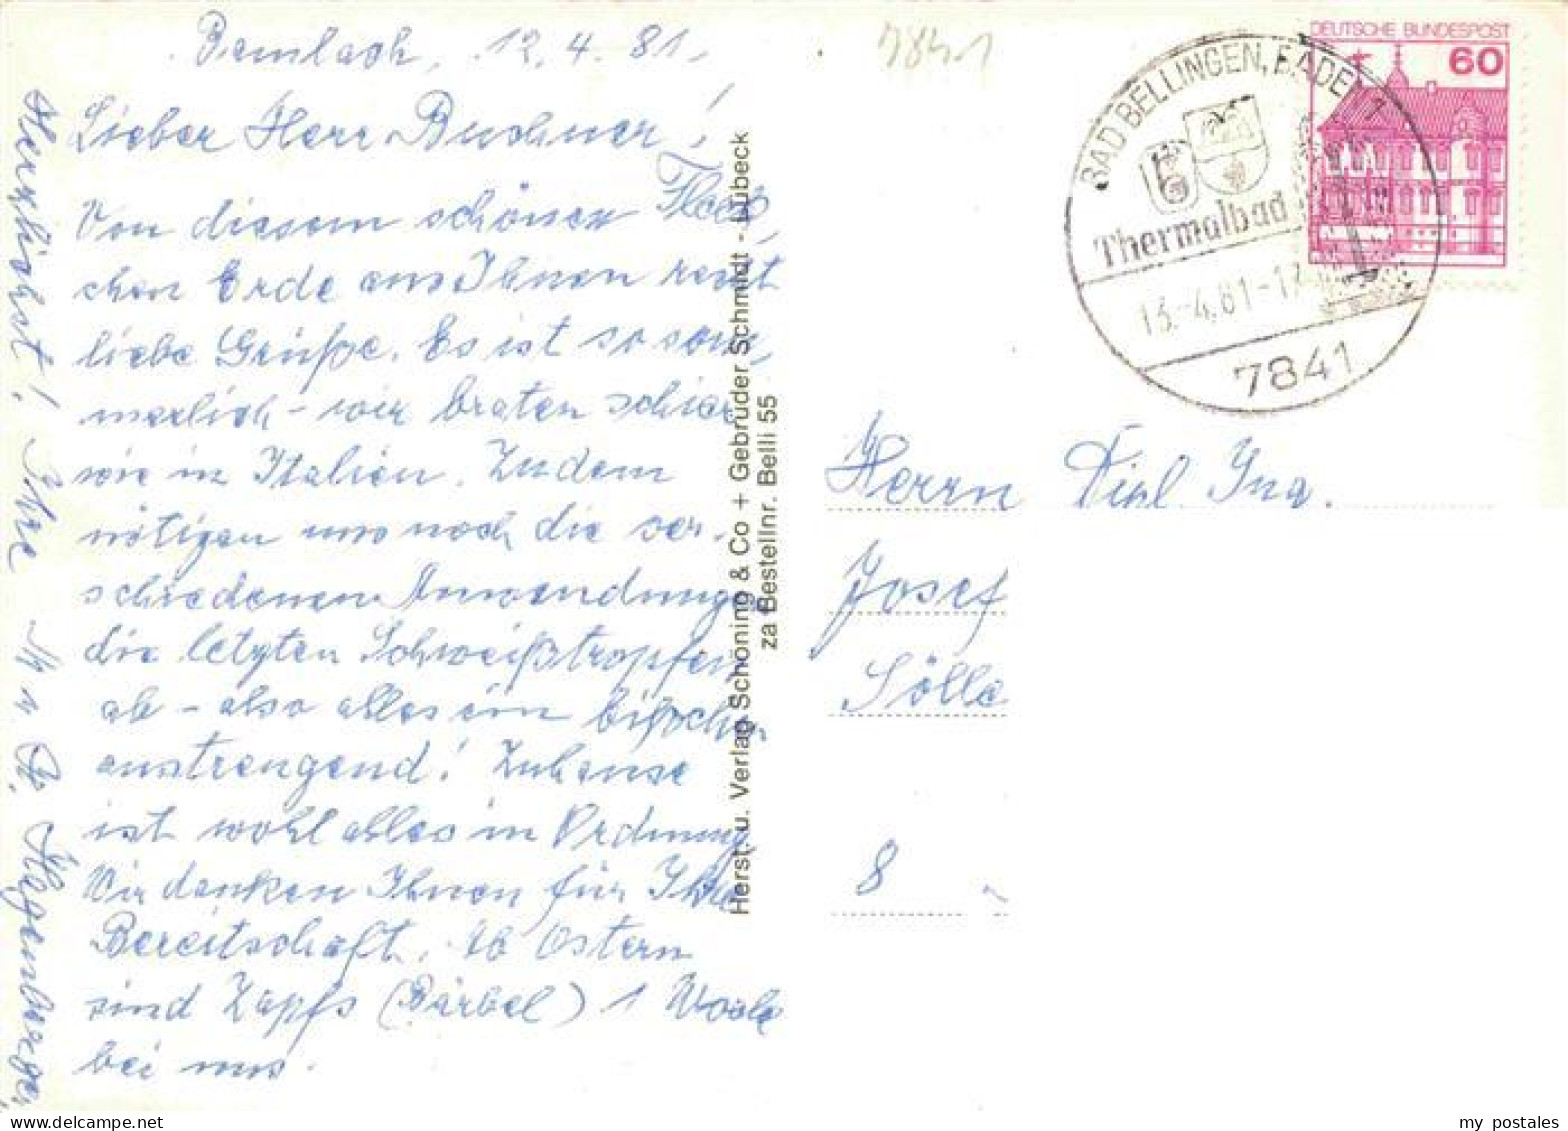 Bamlach, 12.4.81.
Lieber Herr Buchner!
Von diesem schönen Fleck-
chen Erde aus Ihnen recht
liebe Grüße. Es ist so som-
merlich - wir braten schier
wie in Italien. Zudem
nötigen uns noch die ver-
schiedenen Anwendungen
die letzten Schweißtropfen
ab - also alles ein bißchen
anstrengend! Zuhause
ist wohl alles in Ordnung
Wir danken Ihnen für Ihre
Bereitschaft. Ab Ostern
sind Zapfs (Bärbel) 1 Woche
bei uns.
Herzlichst! Ihre
Herst. u. Verlag Schöning & Co + Gebrüder Schmidt - Lübeck
za Bestellnr. Belli 55
7841
DEUTSCHE BUNDESPOST
60
BAD BELLINGEN, BADEN 1
Thermalbad
13.-4.81-17
7841
Herrn Dipl. Ing.
Josef
Sölle
8
my postales